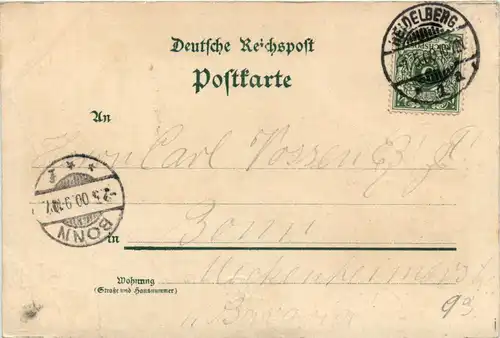 HEIDELBERG
1 a
Deutsche Reichspost
Postkarte
An
Herrn Carl Vossen
BONN
-2.5.00.9-10V
in Bonn
Meckenheimerstr
Wohnung
(Straße und Hausnummer)